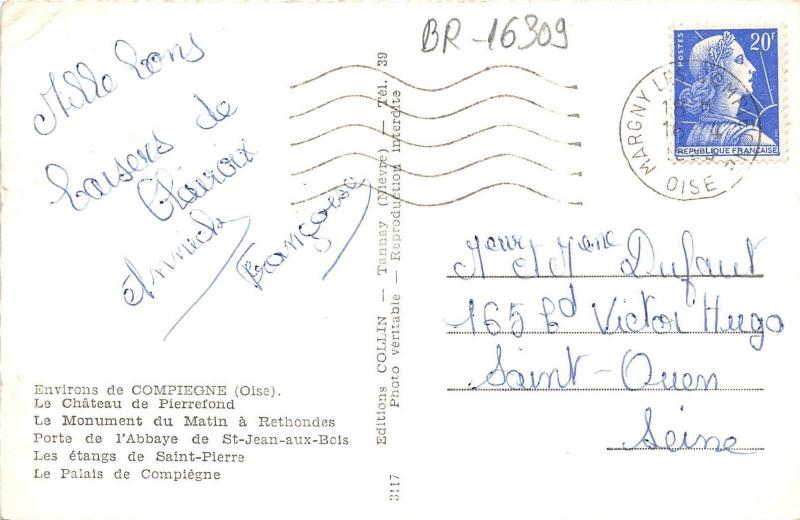 BR-16309
Mille bons
baisers de
Clairoix
Annick
Françoise
POSTES
20F
REPUBLIQUE FRANÇAISE
MARGNY LES COMPIEGNE
18 H
OISE
Meur et Mme Dufaut
165 Bd Victor Hugo
Saint-Ouen
Seine
Environs de COMPIEGNE (Oise).
Le Château de Pierrefond
Le Monument du Matin à Rethondes
Porte de l'Abbaye de St-Jean-aux-Bois
Les étangs de Saint-Pierre
Le Palais de Compiègne
3117 Editions COLLIN — Tannay (Nièvre) — Tél. 39
Photo véritable — Reproduction interdite